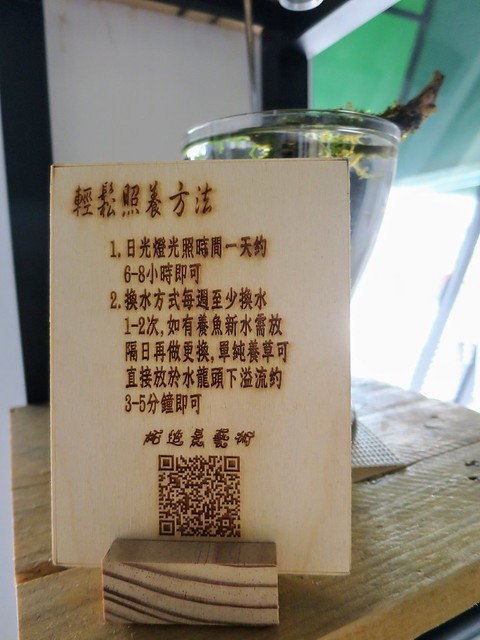 輕鬆照養方法
1.日光燈光照時間一天約
6-8小時即可
2.換水方式每週至少換水
1-2次,如有養魚新水需放
隔日再做更換,單純養草可
直接放於水龍頭下溢流約
3-5分鐘即可
藝術